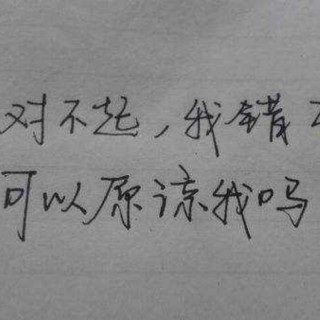 对不起，我错
可以原谅我吗